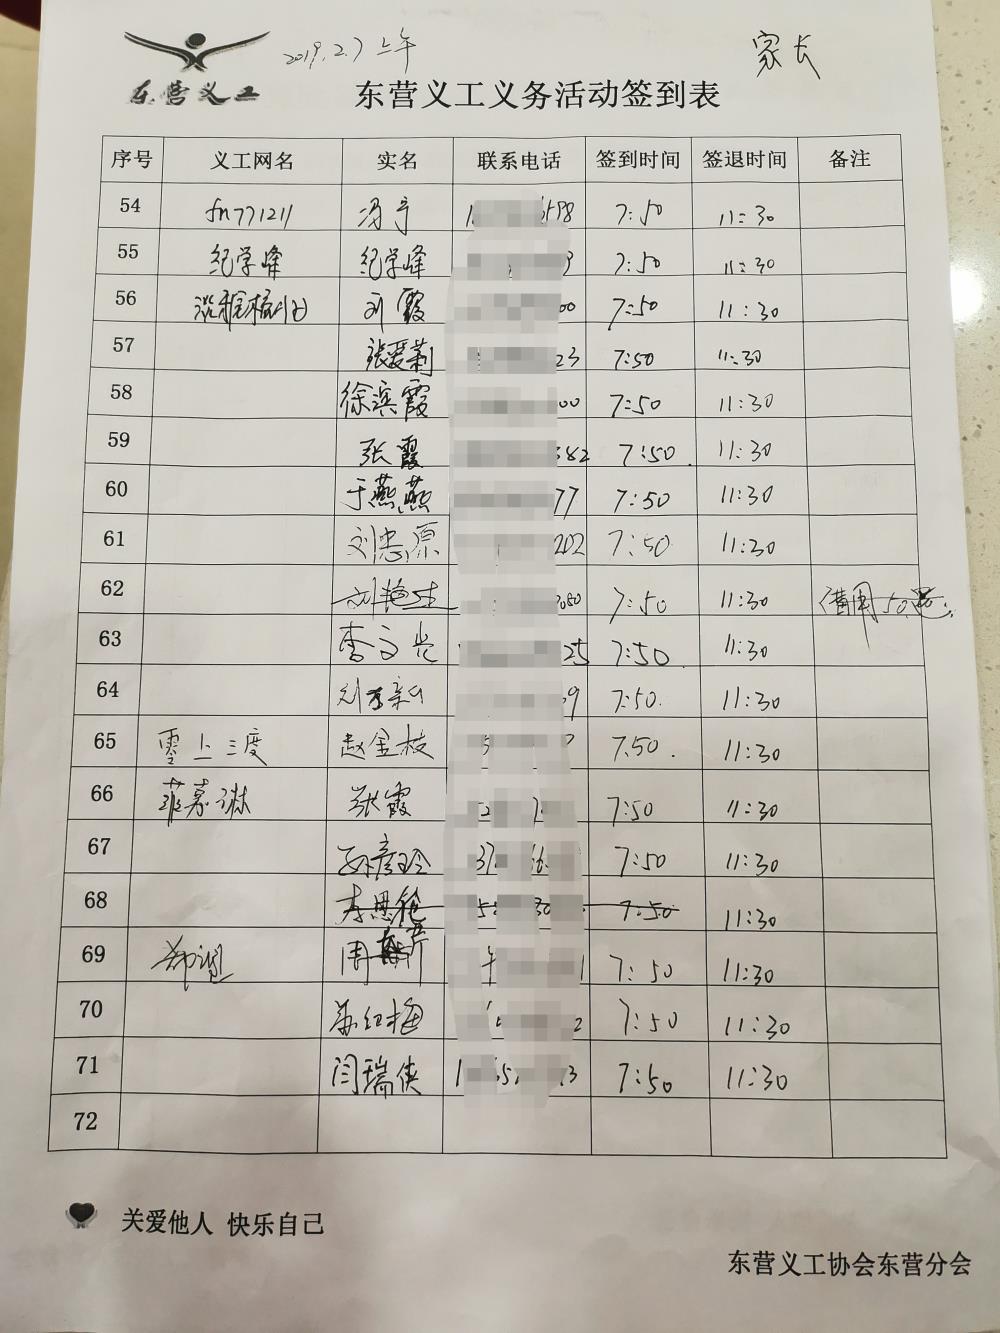 2019.2.7 上午
家长
东营义工
东营义工义务活动签到表
序号 义工网名 实名 联系电话 签到时间 签退时间 备注
54 fn771211 冯宁 7:50 11:30
55 纪学峰 纪学峰 7:50 11:30
56 刘霞 00 7:50 11:30
57 张爱莉 23 7:50 11:30
58 徐滨霞 00 7:50 11:30
59 张霞 382 7:50 11:30
60 于燕燕 77 7:50 11:30
61 刘忠原 202 7:50 11:30
62 刘艳生 7:50 11:30 50
63 李文光 25 7:50 11:30
64 7:50 11:30
65 零上三度 赵金枝 7:50 11:30
66 菲慕琳 张霞 7:50 11:30
67 孙彦玲 7:50 11:30
68 7:50 11:30
69 周 7:50 11:30
70 苏红梅 2 7:50 11:30
71 闫瑞侠 13 7:50 11:30
72
关爱他人 快乐自己
东营义工协会东营分会